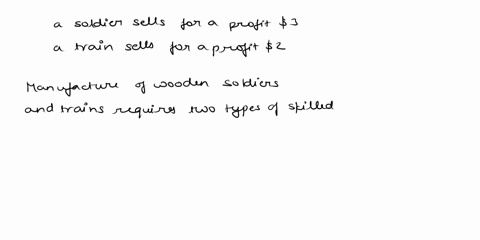 a soldier sells for a profit $3
a train sells for a profit $2
Manufacture of wooden soldiers
and trains requires two types of skilled